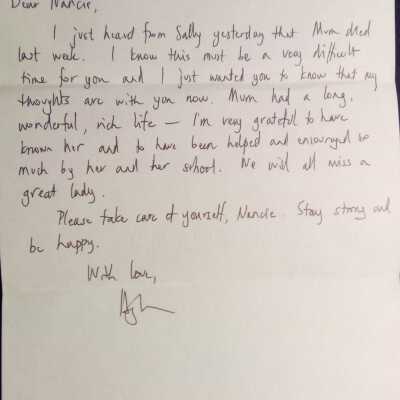 Dear Nancie,
I just heard from Sally yesterday that Mum died
last week. I know this must be a very difficult
time for you and I just wanted you to know that my
thoughts are with you now. Mum had a long,
wonderful, rich life — I'm very grateful to have
known her and to have been helped and encouraged so
much by her and her school. We will all miss a
great lady.
Please take care of yourself, Nancie. Stay strong and
be happy.
With love,